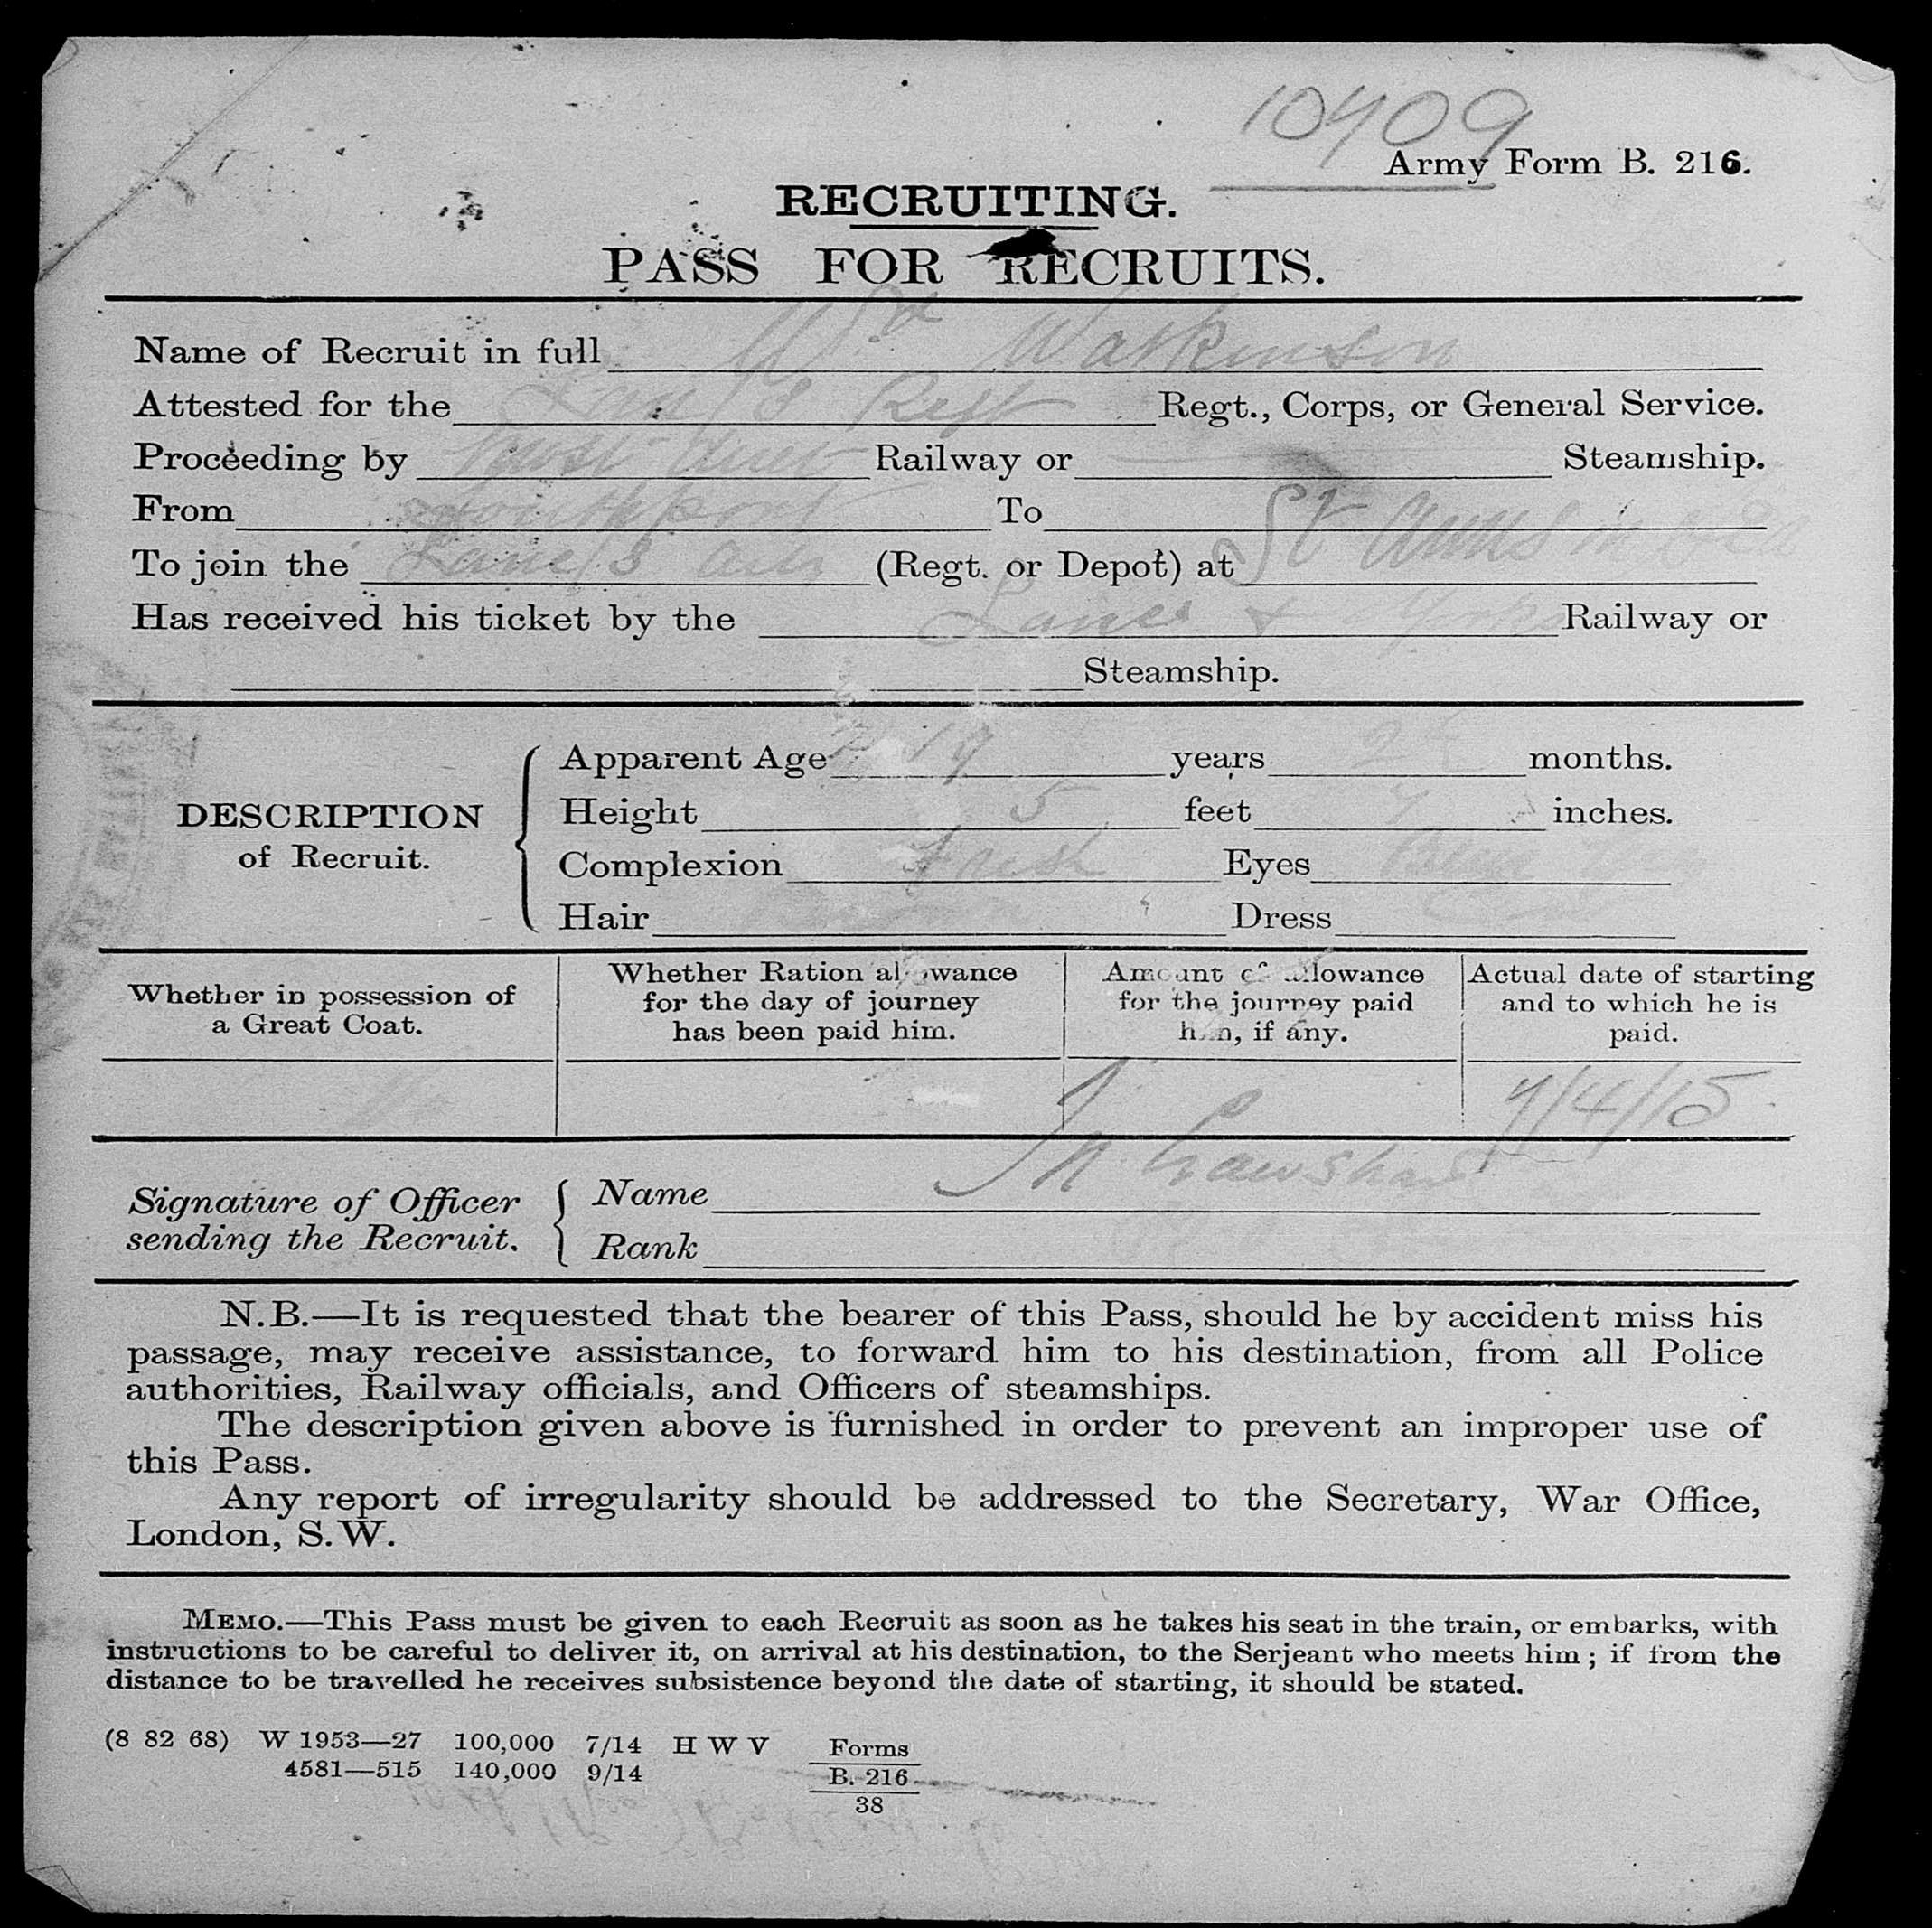 10409
Army Form B. 216.
RECRUITING.
PASS FOR RECRUITS.
Name of Recruit in full Watkinson
Attested for the Regt., Corps, or General Service.
Proceeding by Railway or Steamship.
From Southport To St Annes
To join the (Regt. or Depot) at
Has received his ticket by the Lancs & Yorks Railway or
Steamship.
DESCRIPTION of Recruit.
Apparent Age 19 years 2 months.
Height 5 feet 7 inches.
Complexion Fresh Eyes
Hair Dress
Whether in possession of a Great Coat.
Whether Ration allowance for the day of journey has been paid him.
Amount of allowance for the journey paid him, if any.
Actual date of starting and to which he is paid.
7/4/15
Signature of Officer sending the Recruit.
Name Crawshaw
Rank
N.B.—It is requested that the bearer of this Pass, should he by accident miss his
passage, may receive assistance, to forward him to his destination, from all Police
authorities, Railway officials, and Officers of steamships.
The description given above is furnished in order to prevent an improper use of
this Pass.
Any report of irregularity should be addressed to the Secretary, War Office,
London, S.W.
MEMO.—This Pass must be given to each Recruit as soon as he takes his seat in the train, or embarks, with
instructions to be careful to deliver it, on arrival at his destination, to the Serjeant who meets him; if from the
distance to be travelled he receives subsistence beyond the date of starting, it should be stated.
(8 82 68) W 1953—27 100,000 7/14 H W V Forms
4581—515 140,000 9/14 B. 216
38